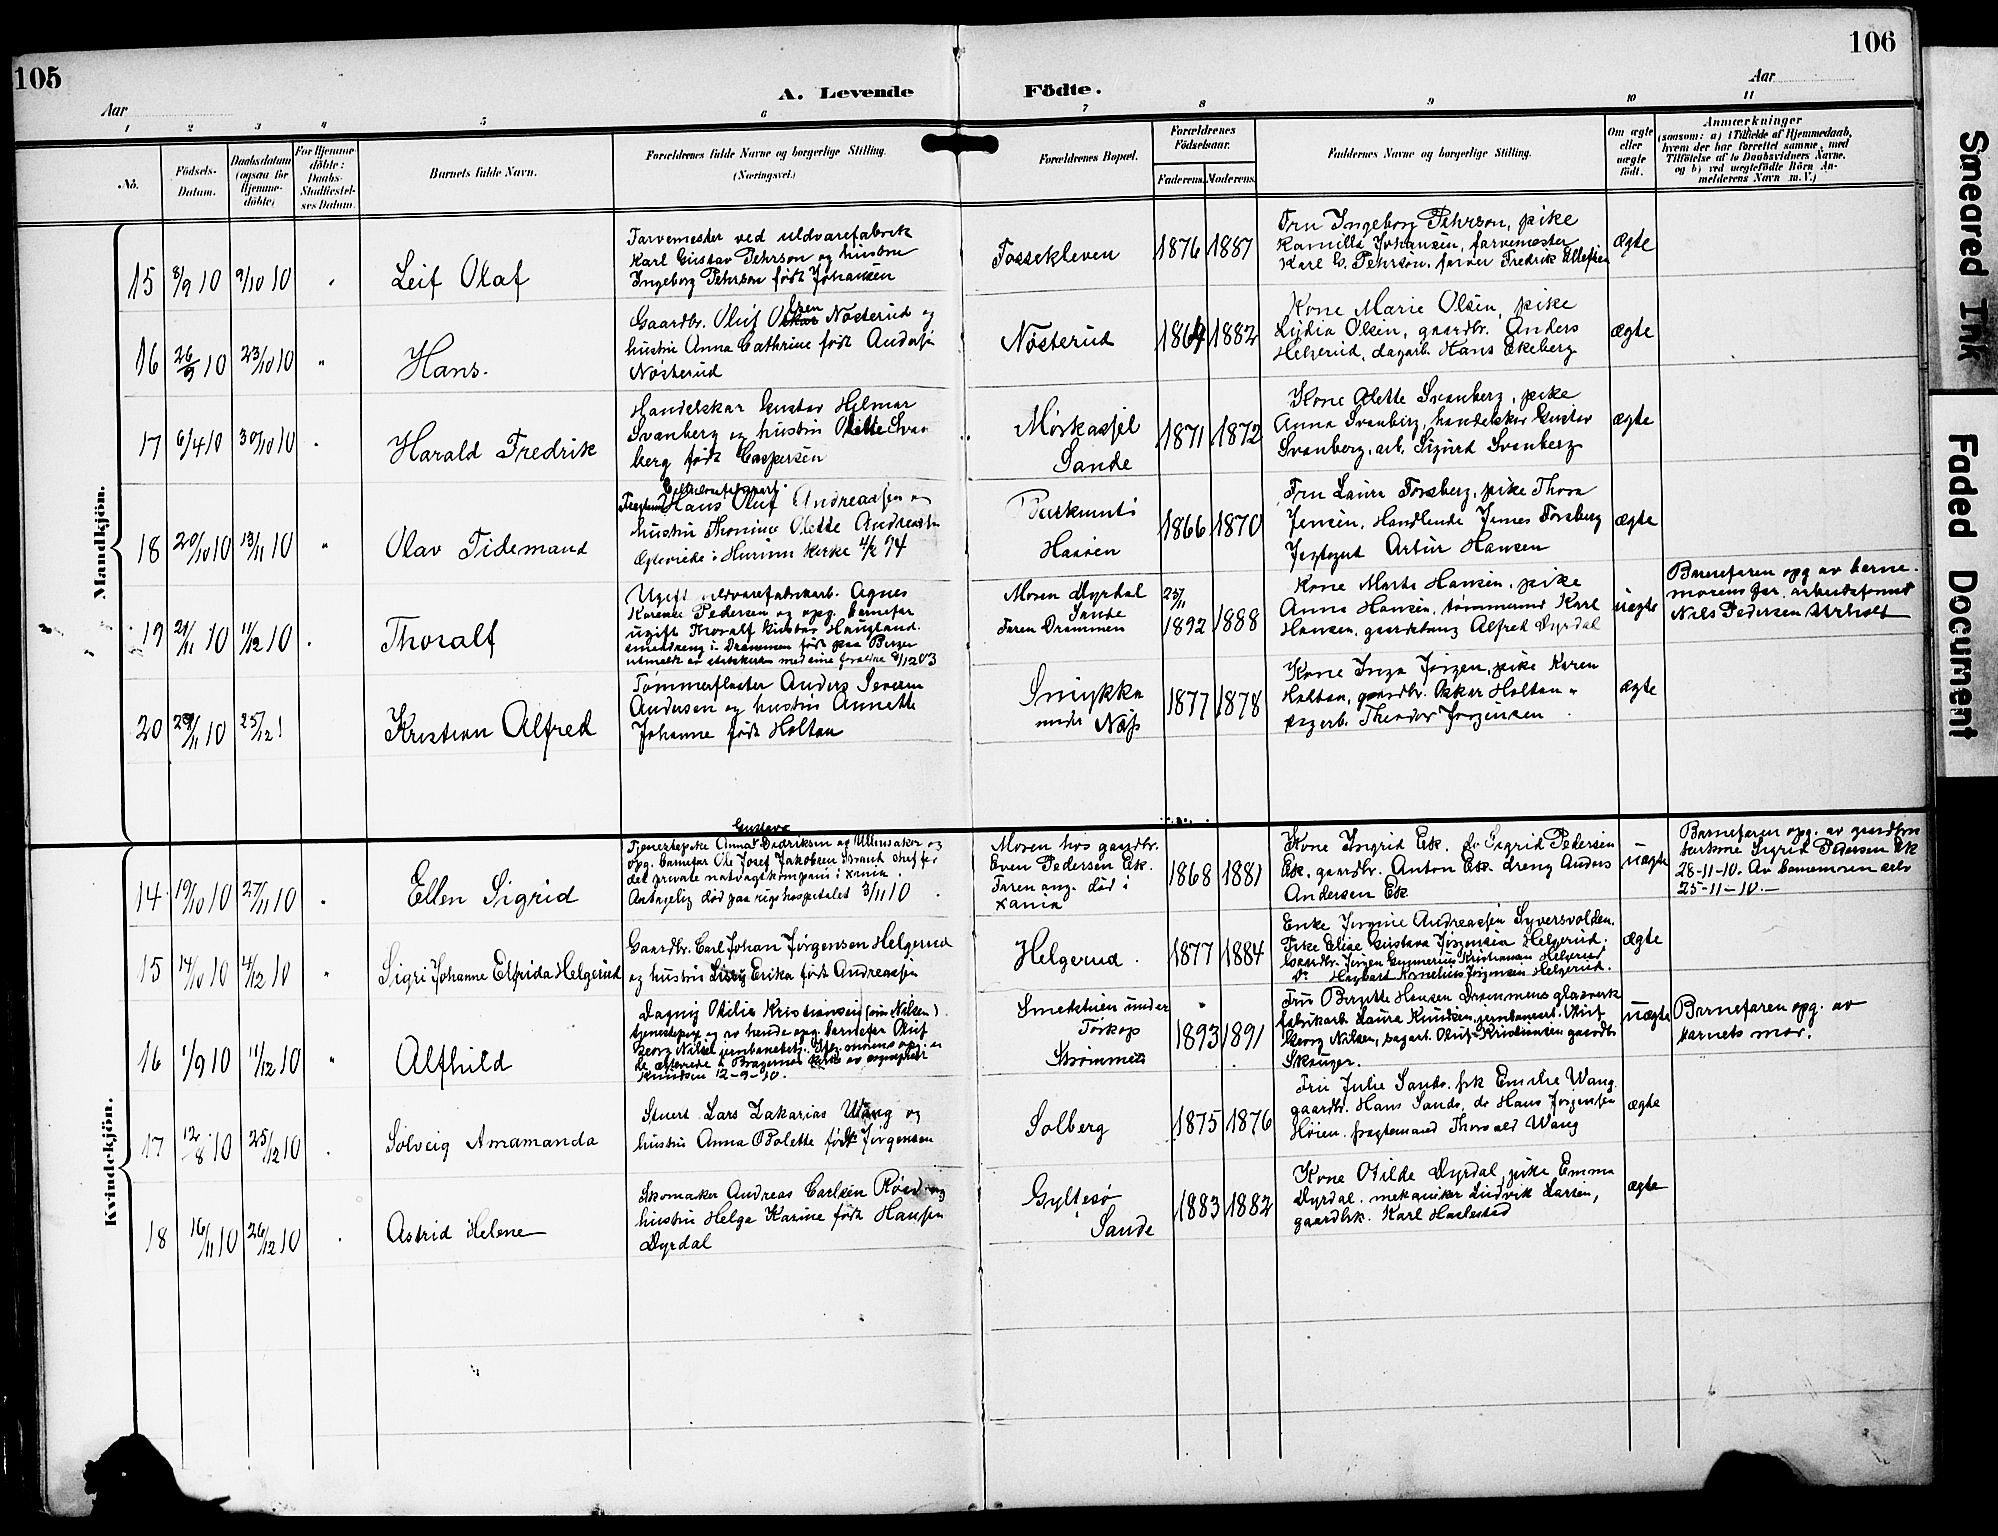 105
106
Aar
A. Levende
Födte.
Aar
1 2 3 4 5 6 7 8 9 10 11
No.
Födsels-
Datum.
Daabsdatum
(ogsaa för
Hjemme-
döbte)
For Hjemme-
döbte:
Daabs-
Stadfæstel-
ses Datum.
Barnets fulde Navn.
Forældrenes fulde Navne og borgerlige Stilling.
(Næringsvei.)
Forældrenes Bopæl.
Forældrenes
Födselsaar.
Faderens. Moderens.
Faddernes Navne og borgerlige Stilling.
Om ægte
eller
uægte
født.
Anmærkninger
(saasom: a) i Tilfælde af Hjemmedaab,
hvem der har forrettet samme, med
Tilføielse af to Daabsvidners Navne,
og b) ved uægtefödte Börn An-
melderens Navn m. V.)
Mandkjön.
15 3/9 10 9/10 10 " Leif Olaf
Farvemester ved uldvarefabrik
Karl Gustav Pehrson og hustru
Ingeborg Pehrson født Johansen
Fossekleven
1876 1887
Fru Ingeborg Pehrson, pike
Kamilla Johansen, farvemester
Karl G. Pehrson, farver Fredrik
ægte
16 26/9 10 23/10 10 " Hans.
Gaardbr. Oluf Olsen Nøsterud og
hustru Anna Cathrine født Andersen
Nøsterud
Nøsterud
1864 1882
Kone Marie Olsen, pike
Lydia Olsen, gaardbr. Anders
Helgerud, dagarb. Hans Ekeberg
ægte
17 6/4 10 30/10 10 " Harald Fredrik
Handelskar Gustav Hilmar
Svanberg og hustru Olette Svan
berg født Caspersen
Sande
1871 1872
Kone Olette Svanberg, pike
Anna Svanberg, handelskar Gustav
Svanberg, arb. Sigurd Svanberg
ægte
18 20/10 10 13/11 10 " Olav Tidemand
Hans Oluf Andreassen og
hustru Thomine Olette Andreassen
Ægteviede i Hurum kirke 4/2 94
1866 1870
Fru Laura Forsberg, pike Thora
Jensen, Handlende Jens Forsberg
Artur Hansen
ægte
19 21/11 10 11/12 10 " Thoralf
Ugift uldvarefabrikarb. Agnes
Karense Pedersen og opg. barnefar
ugift Thoralf Gustav Haugland.
smeddreng i Drammen født paa Berger
utmeldt av statskirken med sine forældre 8/12 03
Moren Dyrdal
Sande
Faren Drammen
25/11
1892 1888
Kone Marte Hansen, pike
Anna Hansen, tømmermd Karl
Hansen, gaardstang Alfred Dyrdal
uægte
Barnefaren opg av barne-
morens far, arbeidsformd
Nils Pedersen
20 29/11 10 25/12 ! Kristian Alfred
Tømmerfløter Anders Severin
Andersen og hustru Annette
Johanne født Holtan
Smykka
under Næss
1877 1878
Kone Inga Jørgen, pike Karen
Holtan, gaardbr. Oskar Holtan "
dagarb. Theodor Jørgensen
ægte
Kvindekjön.
14 19/10 10 27/11 10 " Ellen Sigrid
Gustava
Tjenestepike Anna Didriksen av Ullensaker og
opg. barnefar Ole Josef Jakobsen Strand chef for
det private natvagtskompani i Xania.
Antagelig død paa rigshospitalet 3/11 10
Moren hos gaardbr.
Even Pedersen Ek.
Faren ang. død i
Xania
1868 1881
Kone Ingrid Ek. do Sigrid Pedersen
Ek. gaardbr. Anton Ek. dreng Anders
Andersen Ek
uægte
Barnefaren opg. av gaardbru
kerkone Sigrid Pedersen Ek
28-11-10. Av barnemoren selv
25-11-10.-
15 14/10 10 4/12 10 " Sigri Johanne Elfrida Helgerud
Gaardbr. Carl Johan Jørgensen Helgerud
og hustru Erika født Andreassen
Helgerud.
1877 1884
Enke Jørgine Andreassen Syversvolden.
Pike Elise Gustava Jørgensen Helgerud.
Gaardbr. Jørgen Gunnerius Kristiansen Helgerud
Do Hagbart Kornelius Jørgensen Helgerud.
ægte
16 1/9 10 11/12 10 " Alfhild
Dagny Otilie Kristiansen (nu Nilsen)
tjenestepige og av hende opg. barnefar Oluf
Georg Nilsen jernbanebetj. Iflg. morens opg. er
de ægteviede i Bragernes kirke av sogneprest
Knudsen 12-9-10.
Smedstuen under
Torkop
Skrømmen
"
1893 1891
Fru Birgitte Hansen Drammens glasverk
fabrikarb. Laura Knudsen, jernbanebet. Oluf
Georg Nilsen, bagarb. Oluf Kristiansen gaardbr.
Skauger.
uægte
Barnefaren opg. av
barnets mor.
17 12/8 10 25/12 10 " Solveig Amamanda
Stuert Lars Zakarias Wang og
hustru Anna Bolette født Jørgensen
Solberg
1875 1876
Fru Julie Sande, frk Emilie Wang
gaardbr. Hans Sande, do Hans Jørgensen
Høien, fragtemand Thorvald Wang
ægte
18 16/11 10 26/12 10 " Astrid Helene
Skomaker Andreas Carlsen Røed og
hustru Helga Karine født Hansen
Dyrdal
Gyltesø
Sande
1883 1882
Kone Otilde Dyrdal, pike Emma
Dyrdal, mekaniker Ludvik Larsen,
gaardbk. Karl Haslestad
ægte
Smeared Ink
Faded Document